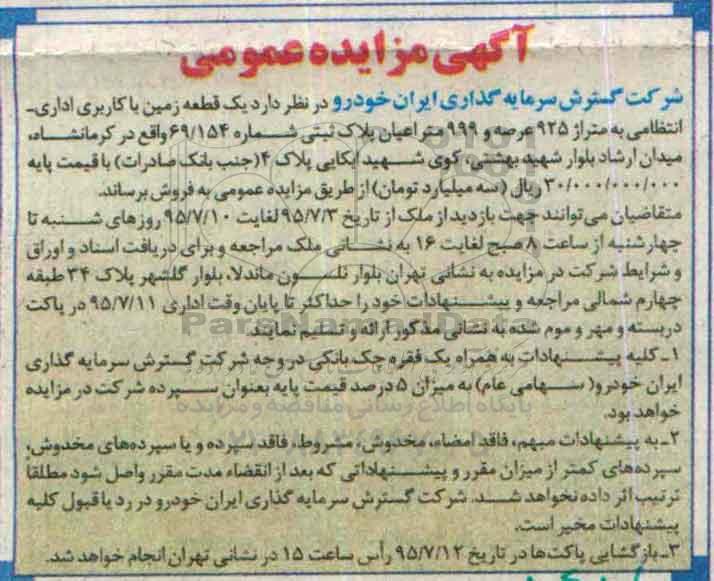 آگهی مزایده عمومی
شرکت گسترش سرمایه گذاری ایران خودرو در نظر دارد یک قطعه زمین با کاربری اداری-
انتظامی به متراژ ۹۲۵ عرصه و ۹۹۹ متر اعیان پلاک ثبتی شماره ۶۹/۱۵۴ واقع در کرمانشاه،
میدان ارشاد بلوار شهید بهشتی، کوی شهید ابکایی پلاک ۴ (جنب بانک صادرات) با قیمت پایه
۳۰/۰۰۰/۰۰۰/۰۰۰ ریال (سه میلیارد تومان) از طریق مزایده عمومی به فروش برساند.
متقاضیان می‌توانند جهت بازدید از ملک از تاریخ ۹۵/۷/۳ لغایت ۹۵/۷/۱۰ روزهای شنبه تا
چهارشنبه از ساعت ۸ صبح لغایت ۱۶ به نشانی ملک مراجعه و برای دریافت اسناد و اوراق
و شرایط شرکت در مزایده به نشانی تهران بلوار نلسون ماندلا، بلوار گلشهر پلاک ۳۴ طبقه
چهارم شمالی مراجعه و پیشنهادات خود را حداکثر تا پایان وقت اداری ۹۵/۷/۱۱ در پاکت
دربسته و مهر و موم شده به نشانی مذکور ارائه و تسلیم نمایند.
۱- کلیه پیشنهادات به همراه یک فقره چک بانکی در وجه شرکت گسترش سرمایه گذاری
ایران خودرو( سهامی عام) به میزان ۵ درصد قیمت پایه بعنوان سپرده شرکت در مزایده
خواهد بود.
۲- به پیشنهادات مبهم، فاقد امضاء، مخدوش، مشروط، فاقد سپرده و یا سپرده‌های مخدوش،
سپرده‌های کمتر از میزان مقرر و پیشنهاداتی که بعد از انقضاء مدت مقرر واصل شود مطلقا
ترتیب اثر داده نخواهد شد. شرکت گسترش سرمایه گذاری ایران خودرو در رد یا قبول کلیه
پیشنهادات مخیر است.
۳- بازگشایی پاکت‌ها در تاریخ ۹۵/۷/۱۲ رأس ساعت ۱۵ در نشانی تهران انجام خواهد شد.
ParsNamadData
پایگاه اطلاع رسانی مناقصه و مزایده